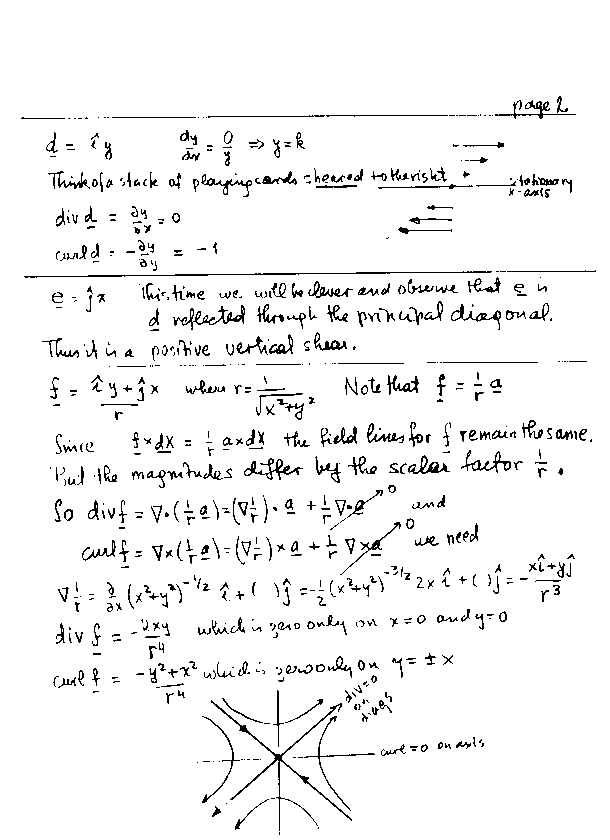 page 2
d = î y   dy/dx = 0/y ⇒ y = k
Think of a stack of playing cards sheared to the right
stationary
x-axis
div d = ∂y/∂x = 0
curl d = -∂y/∂y = -1
e = ĵ x   This time we will be clever and observe that e is
d reflected through the principal diagonal.
Thus it is a positive vertical shear.
f = (î y + ĵ x)/r   where r = 1/√(x²+y²)   Note that f = 1/r a
Since f × dX = 1/r a × dX the field lines for f remain the same.
But the magnitudes differ by the scalar factor 1/r.
So div f = ∇·(1/r a) = (∇ 1/r)· a + 1/r ∇·a → 0   and
curl f = ∇×(1/r a) = (∇ 1/r) × a + 1/r ∇×a → 0   we need
∇ 1/r = ∂/∂x (x²+y²)^(-1/2) î + ( ) ĵ = -1/2 (x²+y²)^(-3/2) 2x î + ( ) ĵ = -(xî + yĵ)/r³
div f = -2xy/r⁴   which is zero only on x=0 and y=0
curl f = (-y²+x²)/r⁴ which is zero only on y = ± x
div=0
on
diags
curl = 0 on axis